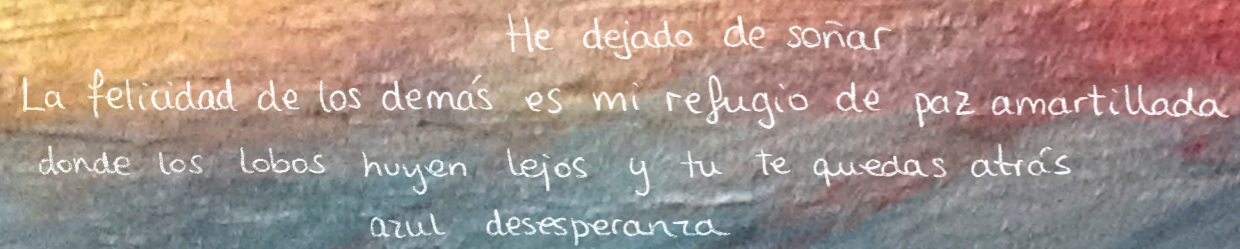 He dejado de soñar
La felicidad de los demás es mi refugio de paz amartillada
donde los lobos huyen lejos y tu te quedas atrás
azul desesperanza